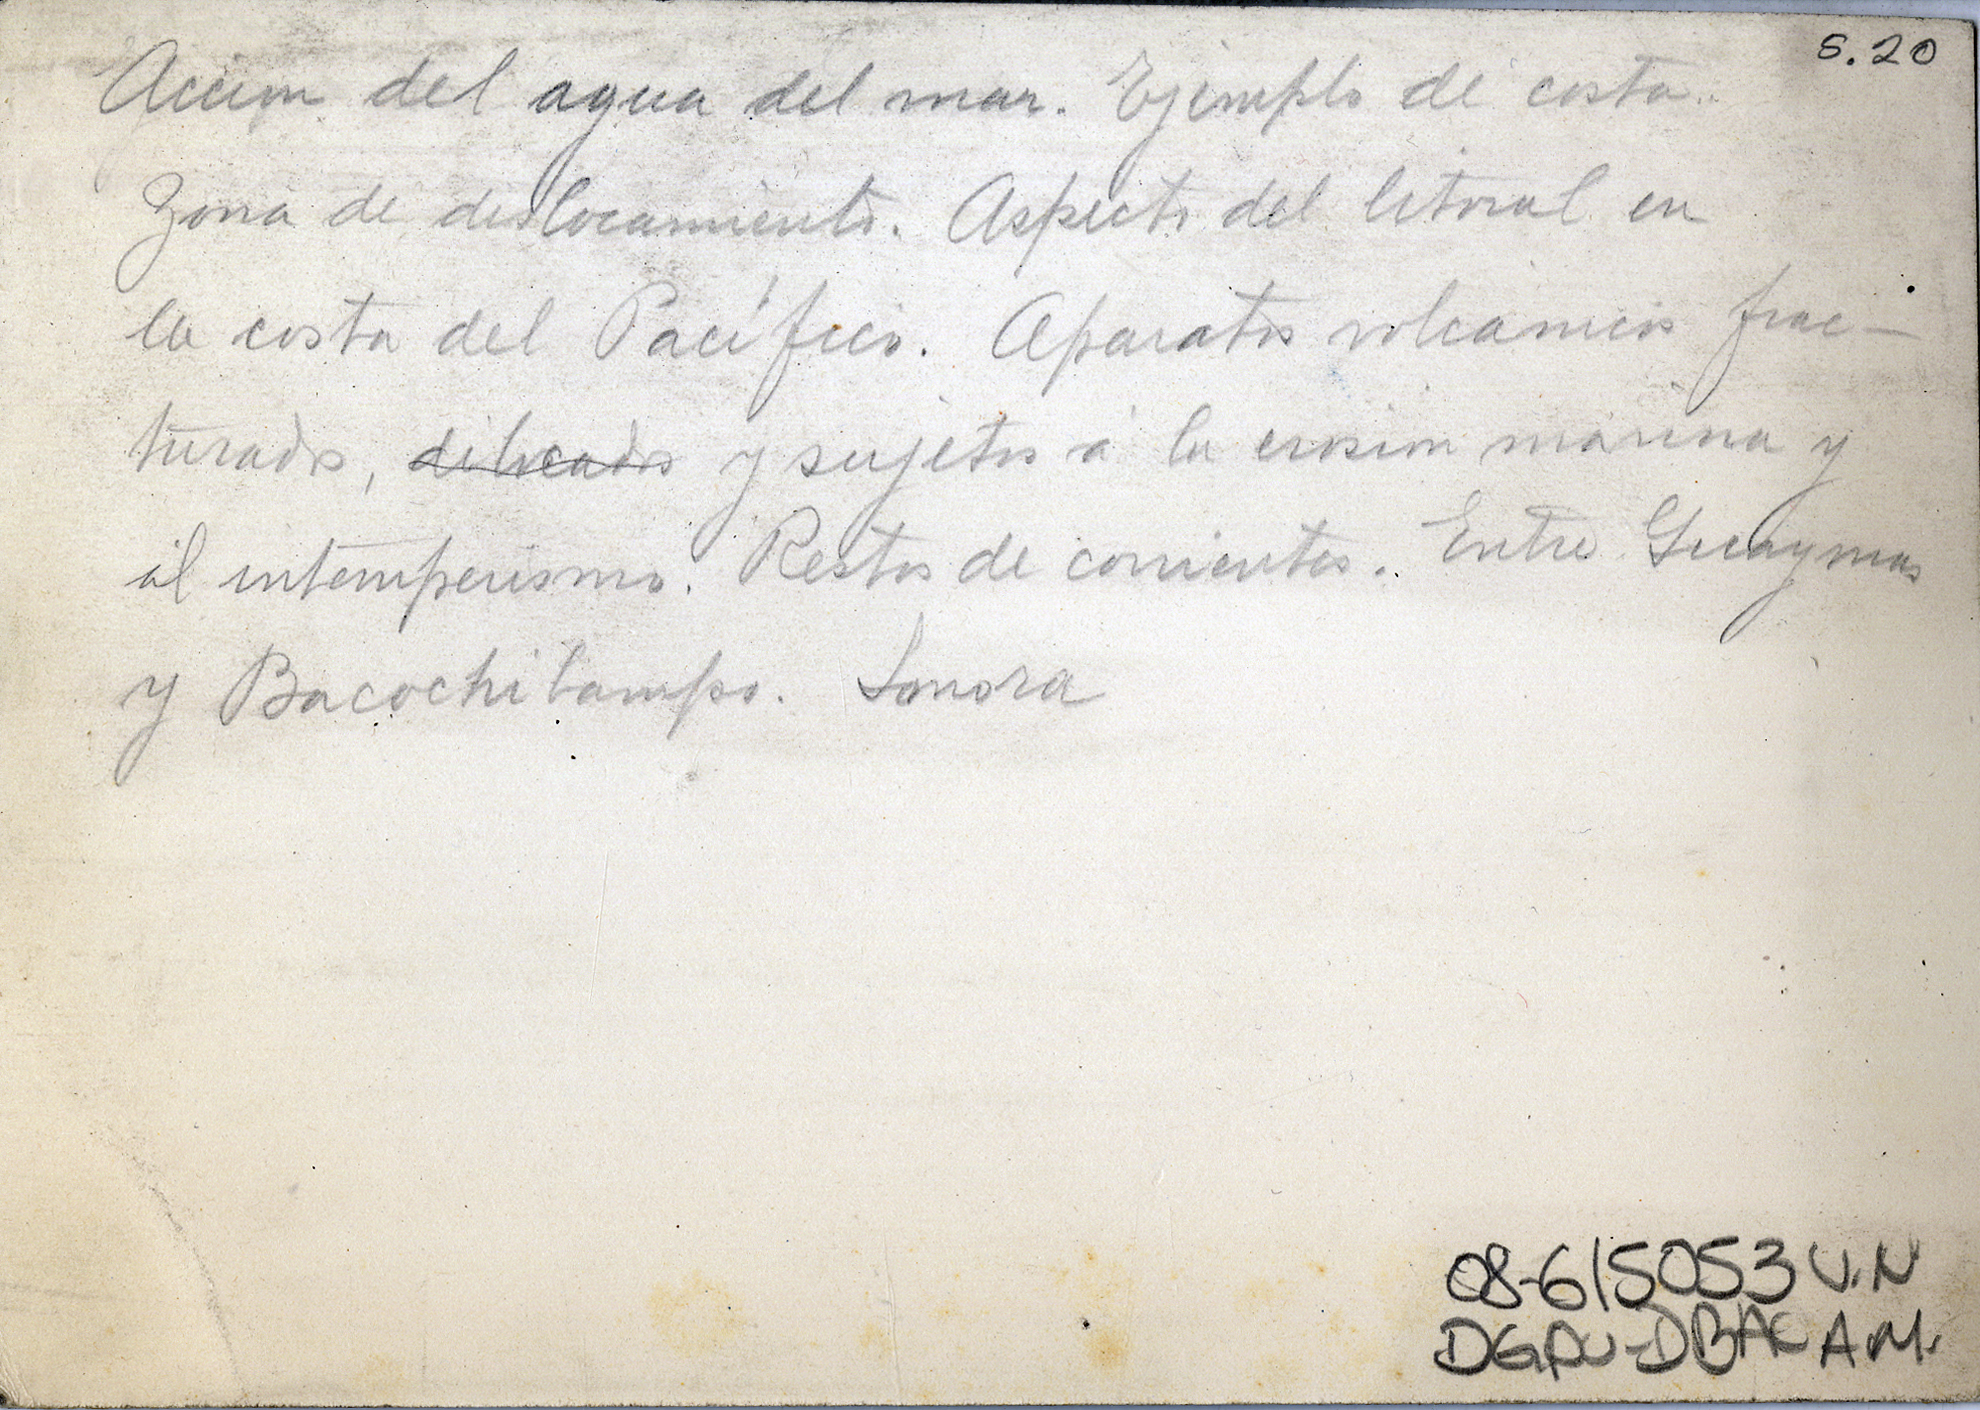 S.20
Accion del agua del mar. Ejemplo de costa.
Zona de deslocamiento. Aspecto del litoral en
la costa del Pacífico. Aparatos volcanicos frac-
turados, y sujetos á la erosion marina y
al intemperismo. Restos de corrientes. Entre Guaymas
y Bacochibampo. Sonora
08-615053 V.N
A.M.